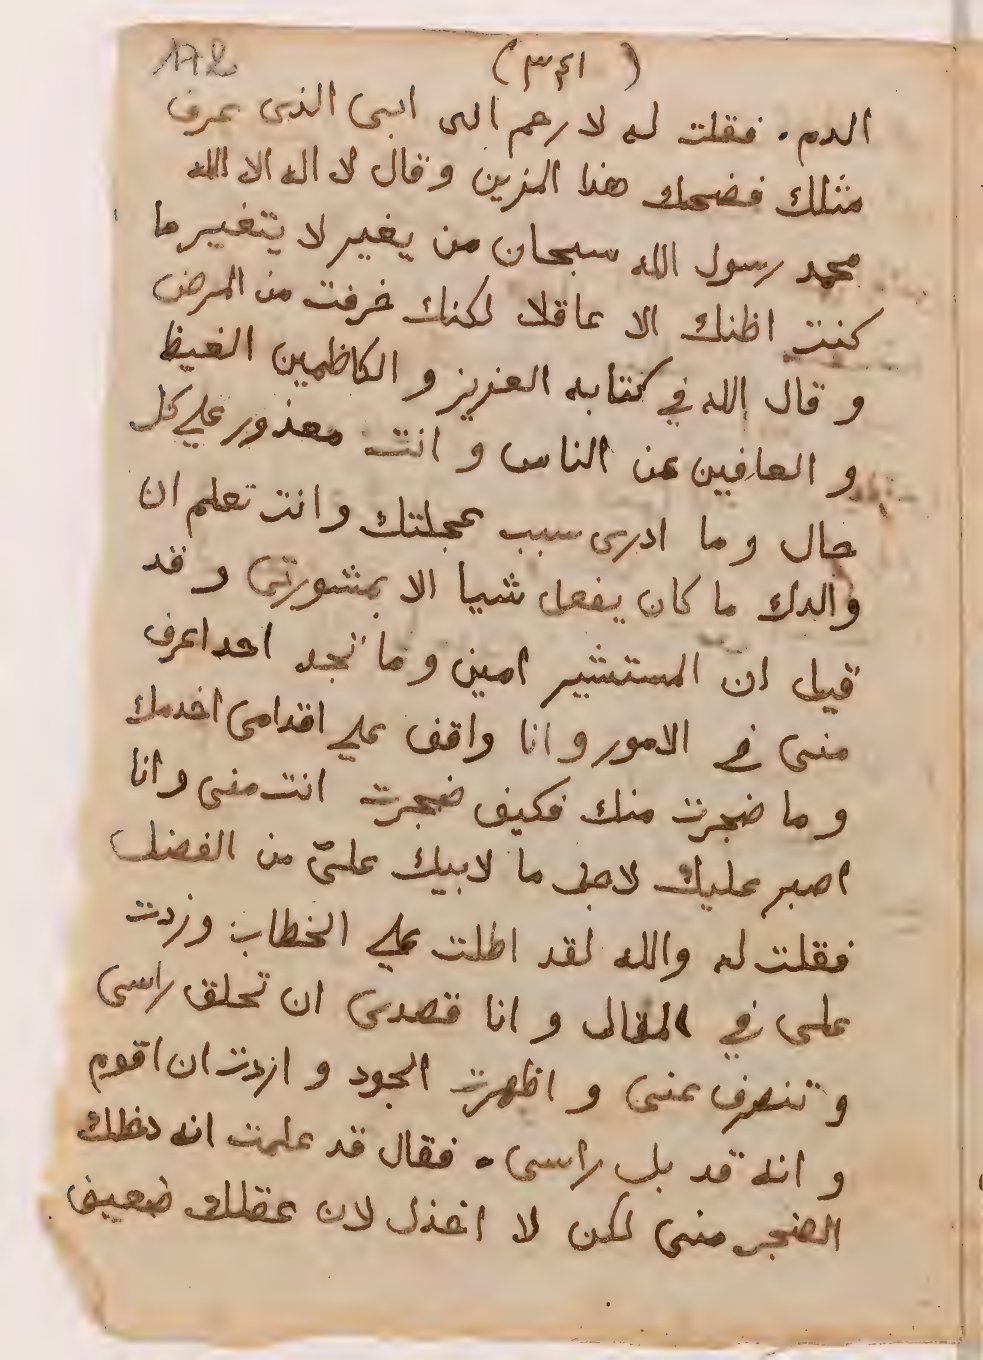 172
(٣٤١)
الدم. فقلت له لا رحم الله ابى الذى عرف
مثلك فضحك هذا المزين وقال لا اله الا الله
محمد رسول الله سبحان من يغير لا يتغير ما
كنت اظنك الا عاقلا لكنك خرفت من المرض
و قال الله في كتابه العزيز و الكاظمين الغيظ
و العافين عن الناس و انت معذور علي كل
حال و ما ادرى سبب عجلتك و انت تعلم ان
والدك ما كان يفعل شيا الا بمشورتى و قد
قيل ان المستشير امين و ما تجد احدا عرف
منى في الامور و انا واقف علي اقدامى اخدمك
و ما ضجرت منك فكيف ضجرت انت منى و انا
اصبر عليك لاجل ما لابيك علىّ من الفضل
فقلت له والله لقد اطلت علي الخطاب وزدت
على في المقال و انا قصدى ان تحلق راسى
و تنصرف عنى و اظهرت الجود و اردت ان اقوم
و انه قد بل راسى. فقال قد علمت انه دخلك
الضجر منى لكن لا اخذل لان عقلك ضعيف